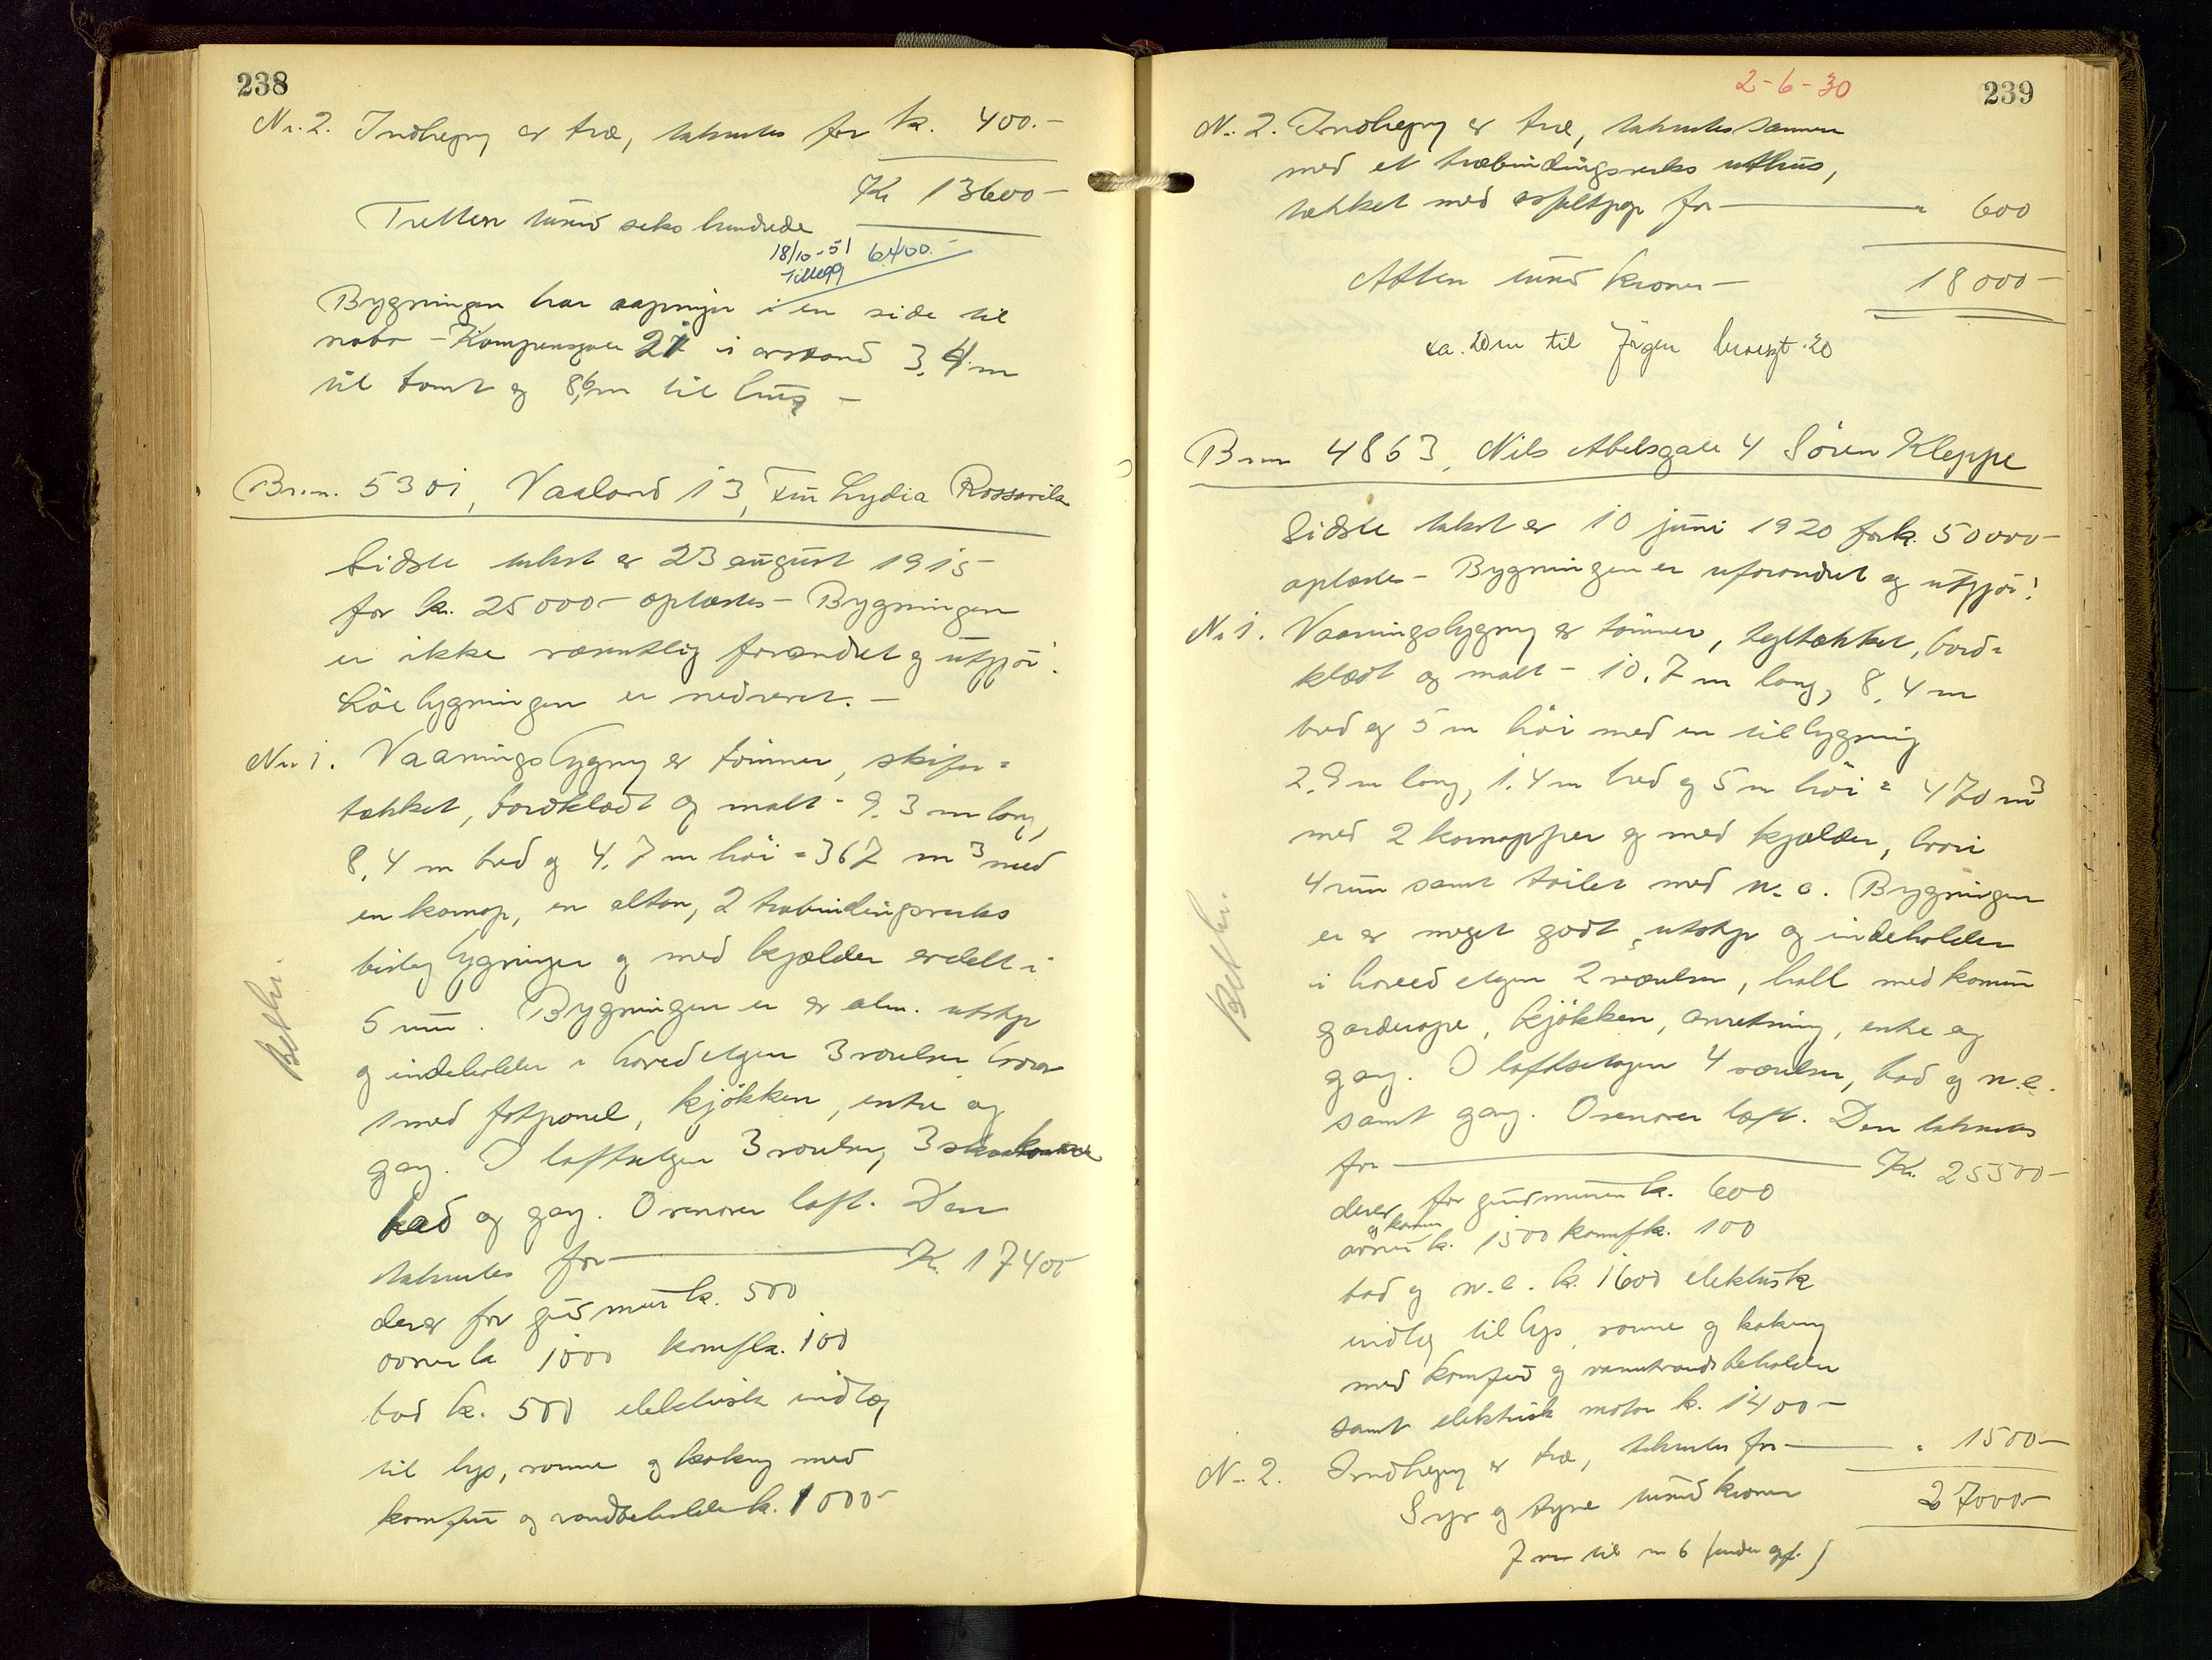 238
Nr. 2. Indhegng er træ, takseres for k. 400.-
Kr 13600-
Tretten tusind seks hundrede
18/10-51 6.400.-
Tillegg
Bygningen har aapninger i en side til
nabo - Kompensgate 21 i avstand 3,4 m
til tomt og 8,6 m til hus -
Br.n. 5301, Vaaland 13, Lydia Rossavik
Sidste takst er 23 august 1915
for kr. 25000- oplæstes - Bygningen
er ikke væsentlig forandret og utgjör:
Löebygningen er nedrevet. -
Nr. 1. Vaaningsbygng er tömmer, skifer-
tækket, bordklædt og malt - 9.3 m lang,
8,4 m bred og 4.7 m höi = 367 m3 med
en kvmap, en altan, 2 træbindingsverks
bislagbygninger og med kjælder avdelt i
5 rum. Bygningen er av alm. utstyr
og indeholder i hovedetagen 3 værelser hvorav
1 med fotpanel, kjökken, entre og
gang. I loftsetagen 3 værelser,
bad og gang. Ovenover loft. Den
takseres for Kr. 17400
derav for grundmur k. 500
ovner k. 1000 komf k. 100
bad k. 500 elektrisk indlæg
til lys, varme og kokning med
komfur og vandbeholder k. 1000-
Beskr.
2-6-30
239
Nr. 2. Indhegng er træ, takseres sammen
med et træbindingsverks uthus,
tækket med asfaltpap for " 600
Atten tusind kroner - 18000-
ca. 20 m til
Brnr 4863, Nils Abelsgate 4 Sören Kleppe
Sidste takst er 10 juni 1920 for k. 50000-
oplæstes - Bygningen er uforandret og utgjör:
Nr 1. Vaaningsbygng er tömmer, tegltækket, bord-
klædt og malt - 10.7 m lang, 8,4 m
bred og 5 m höi med en tilbygning
2.9 m lang, 1.4 m bred og 5 m höi = 470 m3
med 2 kvmapper og med kjælder, hvori
4 rum samt toilet med w.c. Bygningen
er av meget godt utstyr og indeholder
i hovedetagen 2 værelser, hall med kamin
garderope, kjökken, anretning, entre og
gang. I loftsetagen 4 værelser, bad og w.c.
samt gang. Ovenover loft. Den takseres
for Kr. 25500-
derav for grundmuren k. 600
og kamin
ovner k. 1500 komf k. 100
bad og w.c. k. 1600 elektrisk
indlæg til lys varme og kokning
med komfur og varmtvandsbeholder
samt elektrisk motor k. 1400-
Nr. 2. Indhegng er træ, takseres for " 1500-
Syv og tyve tusind kroner 27000-
7 m til nr 6 (under opf.)
Beskr.